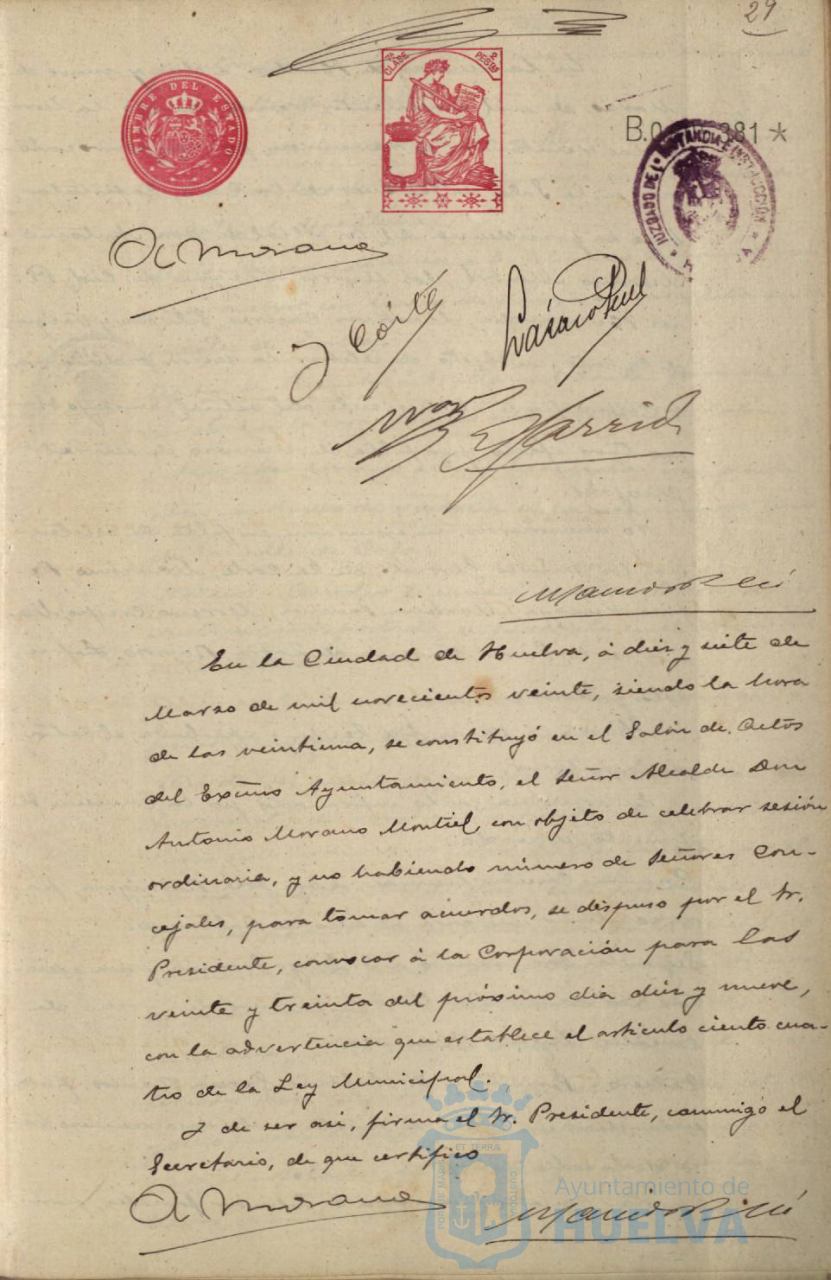 29
TIMBRE DEL ESTADO
7ª CLASE 2 PESETAS
B.0 381 *
JUZGADO DE 1ª INSTANCIA E INSTRUCCIÓN
A Morano
J Coíto
Lázaro Paul
Garrido
En la Ciudad de Huelva, á diez y siete de
Marzo de mil novecientos veinte, siendo la hora
de las veintiuna, se constituyó en el Salón de Actos
del Excmo Ayuntamiento, el Señor Alcalde Don
Antonio Morano Montiel, con objeto de celebrar sesión
ordinaria, y no habiendo número de Señores Con-
cejales, para tomar acuerdos, se dispuso por el Sr.
Presidente, convocar á la Corporación para las
veinte y treinta del próximo dia diez y nueve,
con la advertencia que establece el artículo ciento cua-
tro de la Ley Municipal.
Y de ser asi, firma el Sr. Presidente, conmigo el
Secretario, de que certifico
A Morano
Ayuntamiento de
HUELVA